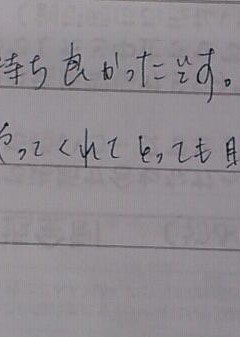 持ち良かったです。
やってくれてとっても